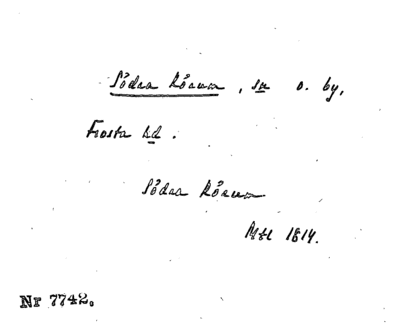 Södra Rörum, sn o. by,
Frosta hd.
Södra Rörum
Mtl 1814.
Nr 7742.